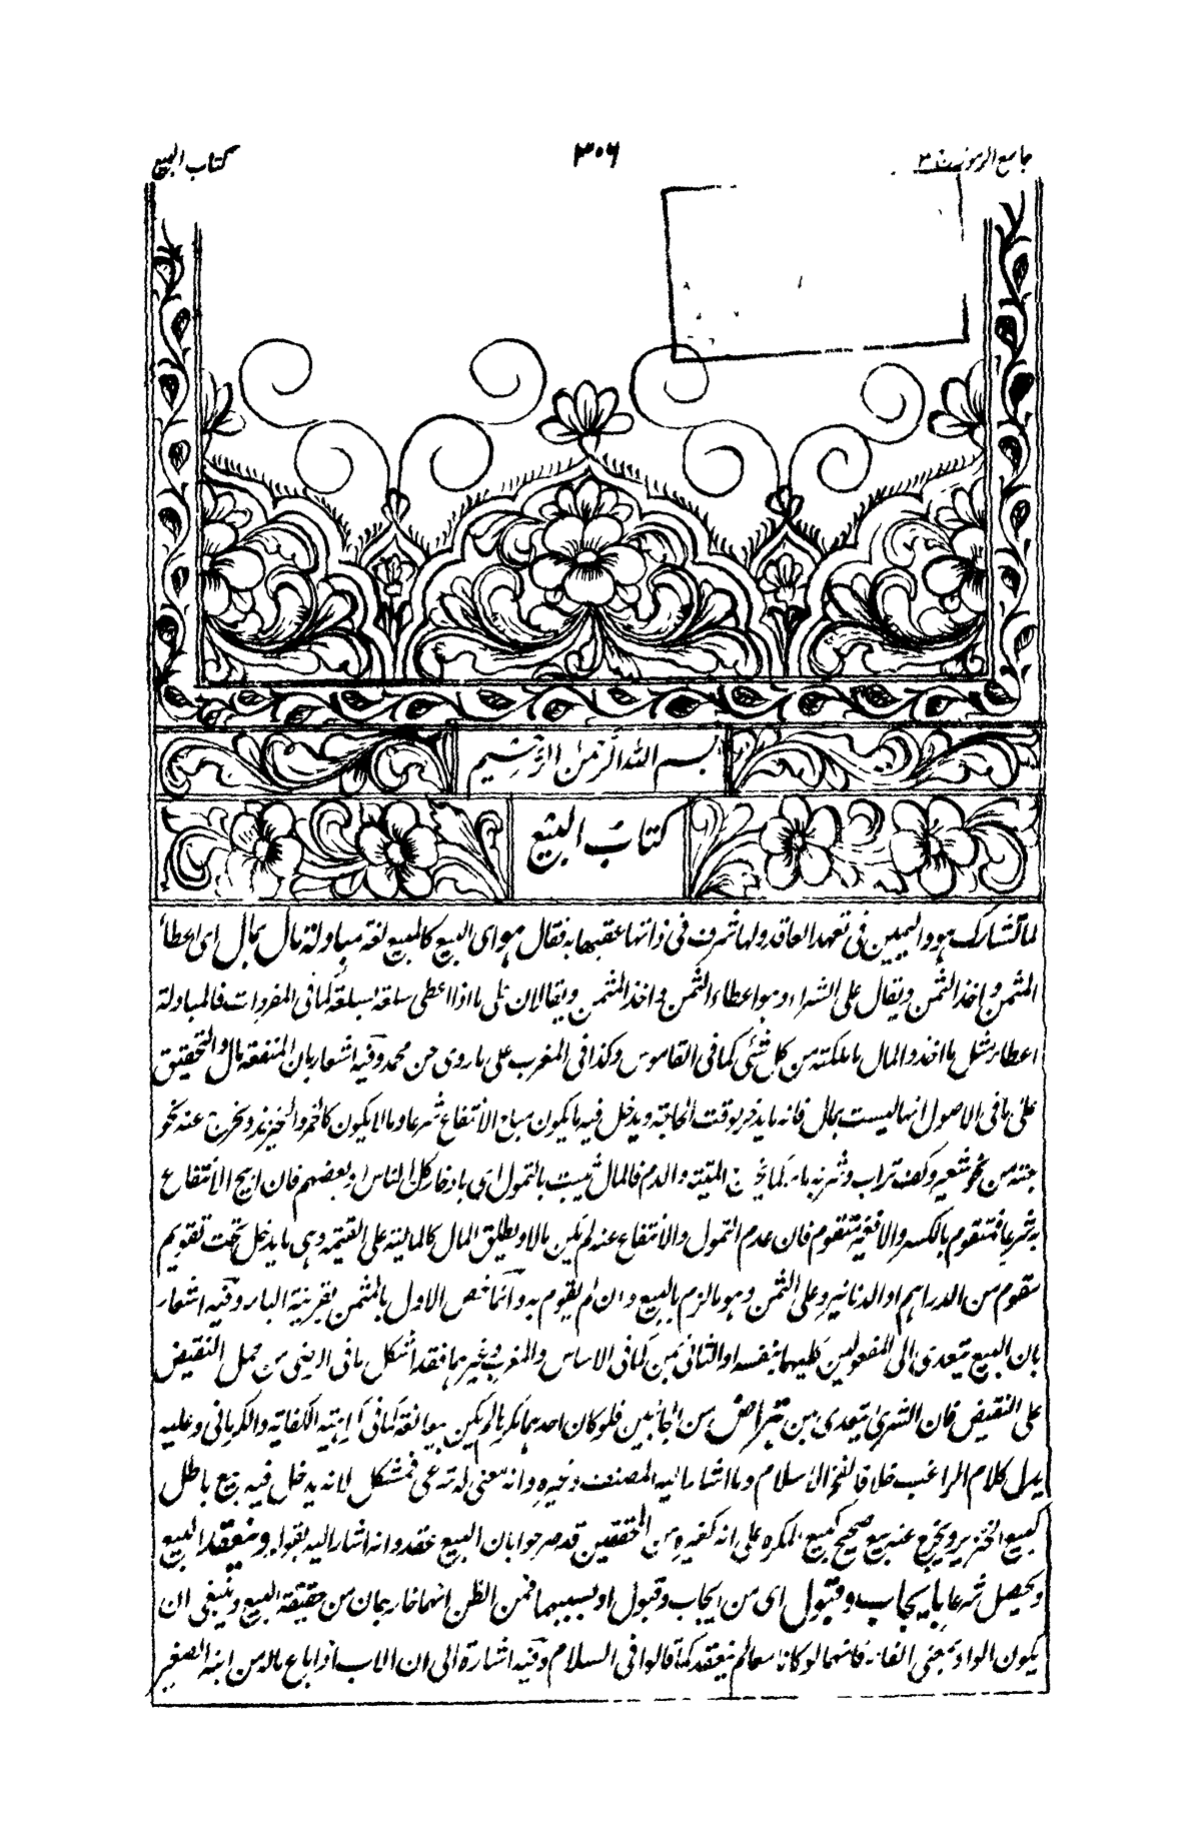 جامع الرموز ج ٣
٣٠٦
كتاب البيع
بسم الله الرحمن الرحيم
كتاب البيع
لما تشارك هو واليمين فى تعهد العاقد ولها شرف فى ذاتها عقبها به فقال هو اى البيع كالمبيع لغة مبادلة مال بمال اى اعطاء
المثمن واخذ الثمن ويقال على الشراء وهو اعطاء الثمن واخذ المثمن ويقالان على ما اذا اعطى سلعة بسلعة كما فى المفردات فالمبادلة
اعطاء مثل ما اخذ والمال ما ملكته من كل شئ كما فى القاموس وكذا فى المغرب على ما روى عن محمد وفيه اشعار بان المنفعة مال والتحقيق
على ما فى الاصول انها ليست بمال فانه ما يدخر لوقت الحاجة ويدخل فيه ما يكون مباح الانتفاع شرعا وما لا يكون كالخمر والخنزير ويخرج عنه نحو
حبة من نحو شعير وكف تراب وشربة ماء كما يخرج الميتة والدم فالمال يثبت بالتمول اى بادخار كل الناس او بعضهم فان ابيح الانتفاع
به شرعا فمتقوم بالكسر والا فغير متقوم فان عدم التمول والانتفاع عنه لم يكن مالا ويطلق المال كالمالية على القيمة وهى ما يدخل تحت تقويم
مقوم من الدراهم او الدنانير وعلى الثمن وهو ما لزم بالبيع وان لم يقوم به وانما خص الاول بالمثمن بقرينة الباء وفيه اشعار
بان البيع يتعدى الى المفعولين كليهما بنفسه او الثانى بمن كما فى الاساس والمغرب وغيرهما فقد اشكل ما فى الرضى من حمل النقيض
على النقيض فان الشرى يتعدى بمن بتراض من الجانبين فلو كان احدهما مكرها لم يكن بيعا لغة كما فى الكفاية والكرمانى وعليه
يدل كلام الراغب خلافا لفخر الاسلام وما اشار اليه المصنف وغيره وانه معنى له شرعى فمشكل لانه يدخل فيه بيع باطل
كبيع الخنزير ويخرج عنه بيع صحيح كبيع المكره على انه كغيره من المحققين قد صرحوا بان البيع عقد وانه اشار اليه بقوله وينعقد البيع
ويحصل شرعا بايجاب وقبول اى من ايجاب وقبول او بسببهما فمن الظن انهما خارجان من حقيقة البيع وينبغى ان
يكون الواو بمعنى الفاء فانهما لو كانا معا لم ينعقد كما قالوا فى السلام وفيه اشارة الى ان الاب اذا باع ماله من ابنه الصغير